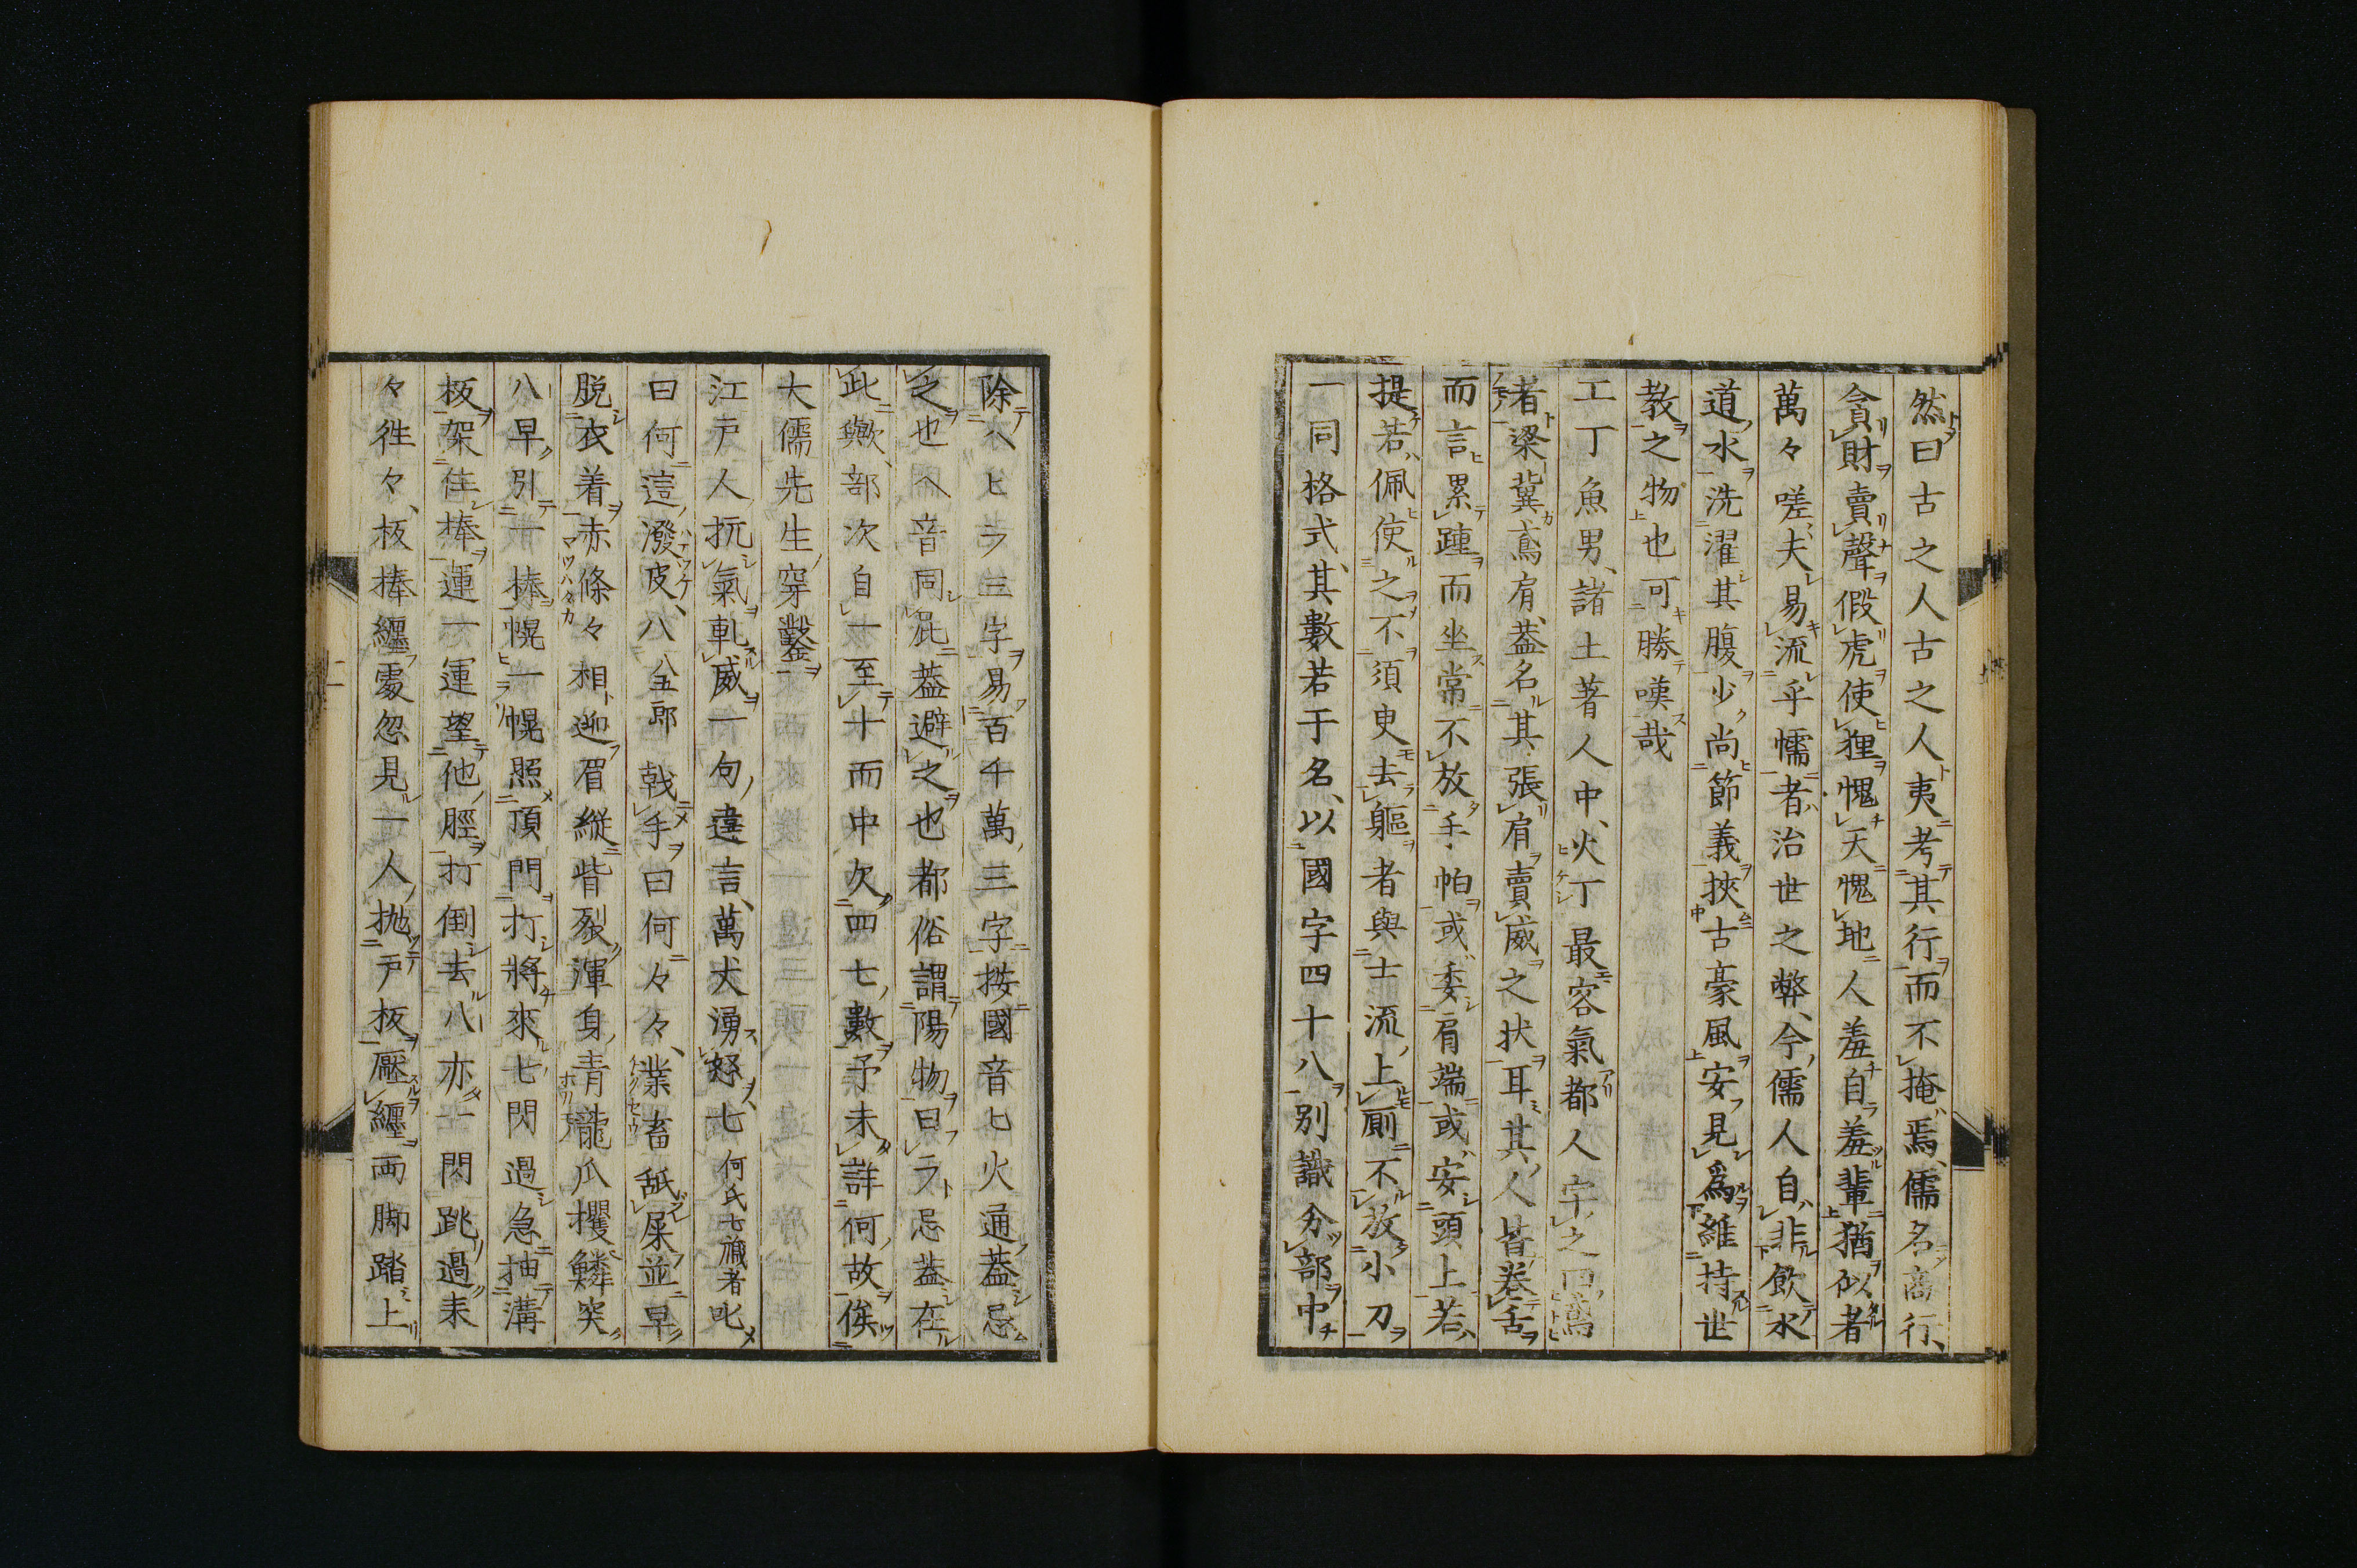 然曰古之人古之人夷考其行而不掩焉、儒名高行、
貪財賣聲假虎使狸愧天愧地人羞自羞輩猶似者
萬々嗟夫易流乎懦者治世之弊、今儒人自非飲水
道水洗濯其腹少尚節義挾古豪風安見爲維持世
教之物也可勝嘆哉
工丁魚男、諸土著人中、火丁最客氣都人字之曰鳶
者梁冀鳶肩、蓋名其張肩賣威之狀耳其人皆卷舌
而言累踵而坐常不放手帕或委肩端或安頭上若
提若佩使之不須臾去軀者與士流上厠不放小刀
一同格式、其數若干名、以國字四十八別識分部中
除ヘヒラ三字易百千萬三字按國音七火通蓋忌
之也ヘ音同屁蓋避之也都俗謂陽物曰ラ忌蓋在
此歟、部次自一至十而中欠四七數予未詳何故俟
大儒先生穿鑿
江戸人抗氣軋威一句違言、萬犬湧怒七何氏七藏者叱
曰何這潑皮、八八五郎戟手曰何々々、業畜舐屎並早
脱衣着赤條々相迎眉縦眥裂渾身青龍爪攫鱗突
八早引一棒幌一幌照頂門打將來七閃過急抽溝
板架住棒運一運望他脛打倒去八亦一閃跳過耒
々徃々、板捧纏處忽見一人抛戸板壓纏両脚踏上
二